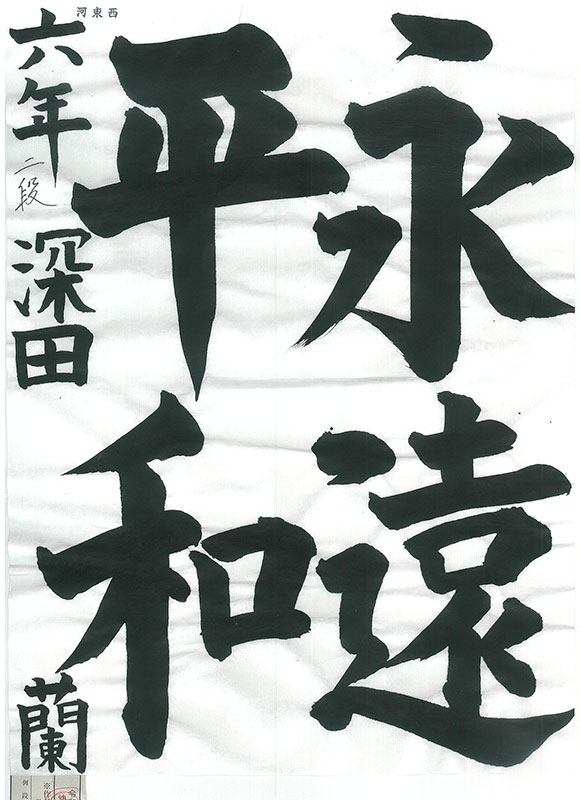 永遠
平和
六年 二段 深田 蘭
河東西